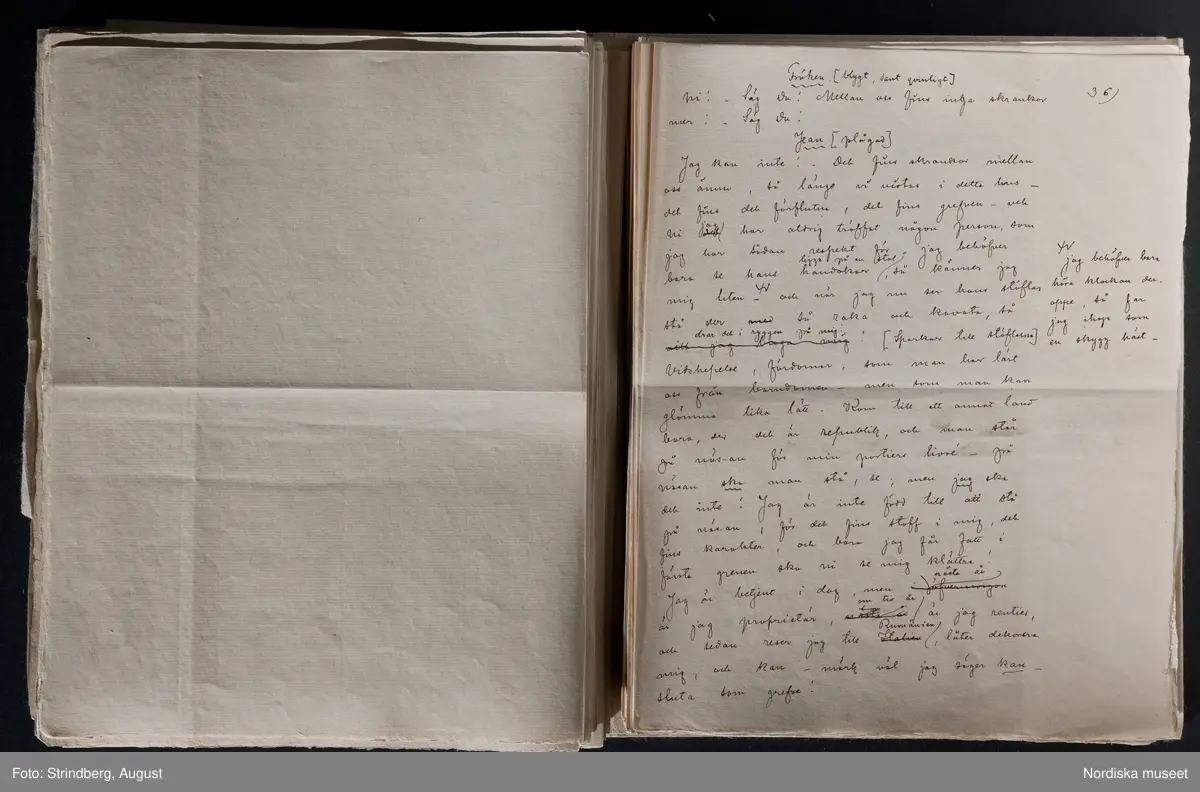 36)
Fröken [blygt, sant qvinligt]
Ni! – Säg du! Mellan oss fins inga skrankor
mer! – Säg du!
Jean [plågad]
Jag kan inte! – Det fins skrankor mellan
oss ännu, så länge vi vistas i detta hus –
det fins det förflutna, det fins grefven – och
ni jag har aldrig träffat någon person, som
jag har sådan respekt för – jag behöfver
bara se hans handskar ligga på en stol, så känner jag
mig liten – och när jag nu ser hans stöflar
jag behöfver bara
höra klockan der
oppe, så far
jag ihop som
en skygg häst –
stå der med så raka och kavata, så
drar det i ryggen på mig! [Sparkar till stöflarna]
att jag
Vidskepelse, fördomar, som man har lärt
oss från barndomen – men som man kan
glömma lika lätt. Kom till ett annat land
bara, der det är republik, och man står
på näsan för min portiers livré – på
näsan ska man stå, se; men jag ska
det inte! Jag är inte född till att stå
på näsan, för det fins stoff i mig, det
fins karakter, och bara jag får fatt i
första grenen ska ni se mig klättra!
Jag är betjent i dag, men i öfvermorgon nästa år
är jag proprietär, nästa år om tio år är jag rentier,
och sedan reser jag till Italien Rumänien, låter dekorera
mig, och kan – märk väl jag säger kan –
sluta som grefve!
Foto: Strindberg, August
Nordiska museet